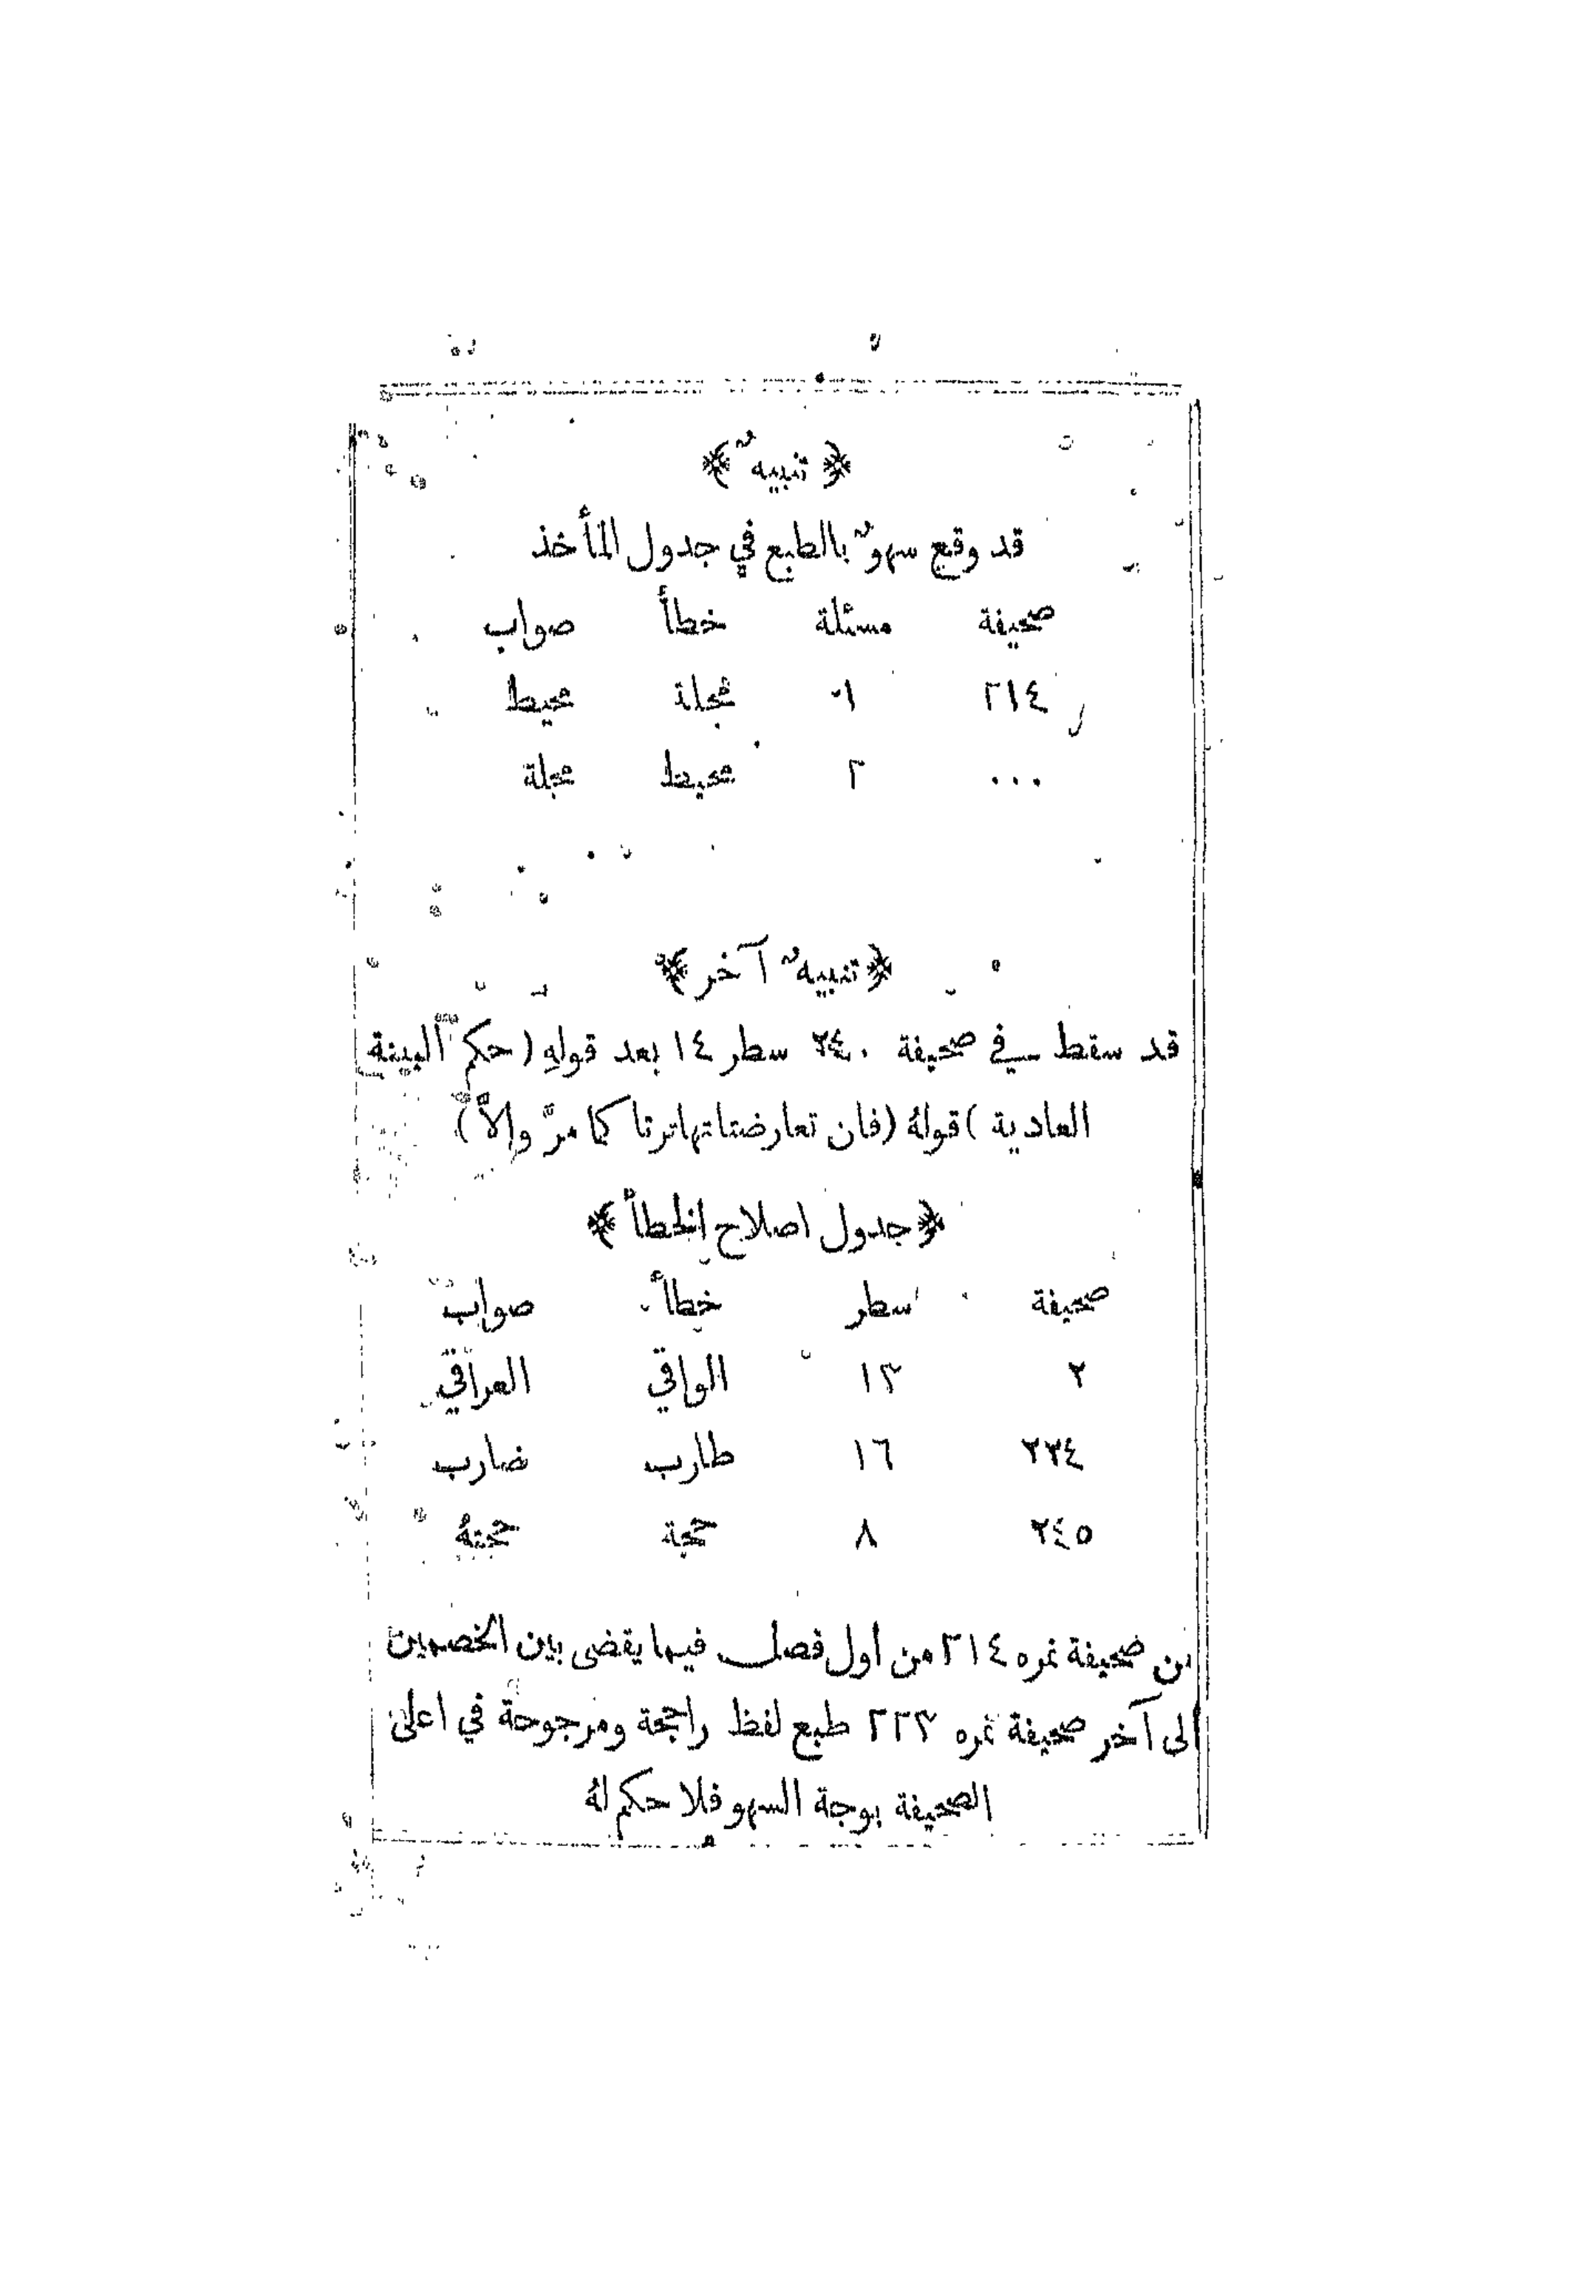 ﴿ تنبيهٌ ﴾
قد وقع سهوٌ بالطبع في جدول المأخذ
صحيفة مسئلة خطأ صواب
٢١٤ ١ مجلة محيط
... ٢ محيط مجلة
﴿ تنبيهٌ آخر ﴾
قد سقط في صحيفة ٢٤٠ سطر ١٤ بعد قوله (حكم البينة
العادية) قولهُ (فان تعارضتا تهاترتا كما مرَّ والاَّ)
﴿ جدول اصلاح الخطأ ﴾
صحيفة سطر خطأ صواب
٢ ١٣ الواقي العراقي
٢٣٤ ١٦ طارب ضارب
٢٤٥ ٨ حجة حجتهُ
من صحيفة نمره ٢١٤ من اول فصل فيما يقضى بين الخصمين
الى آخر صحيفة نمره ٢٢٣ طبع لفظ راجحة ومرجوحة في اعلى
الصحيفة بوجة السهو فلا حكم لهُ